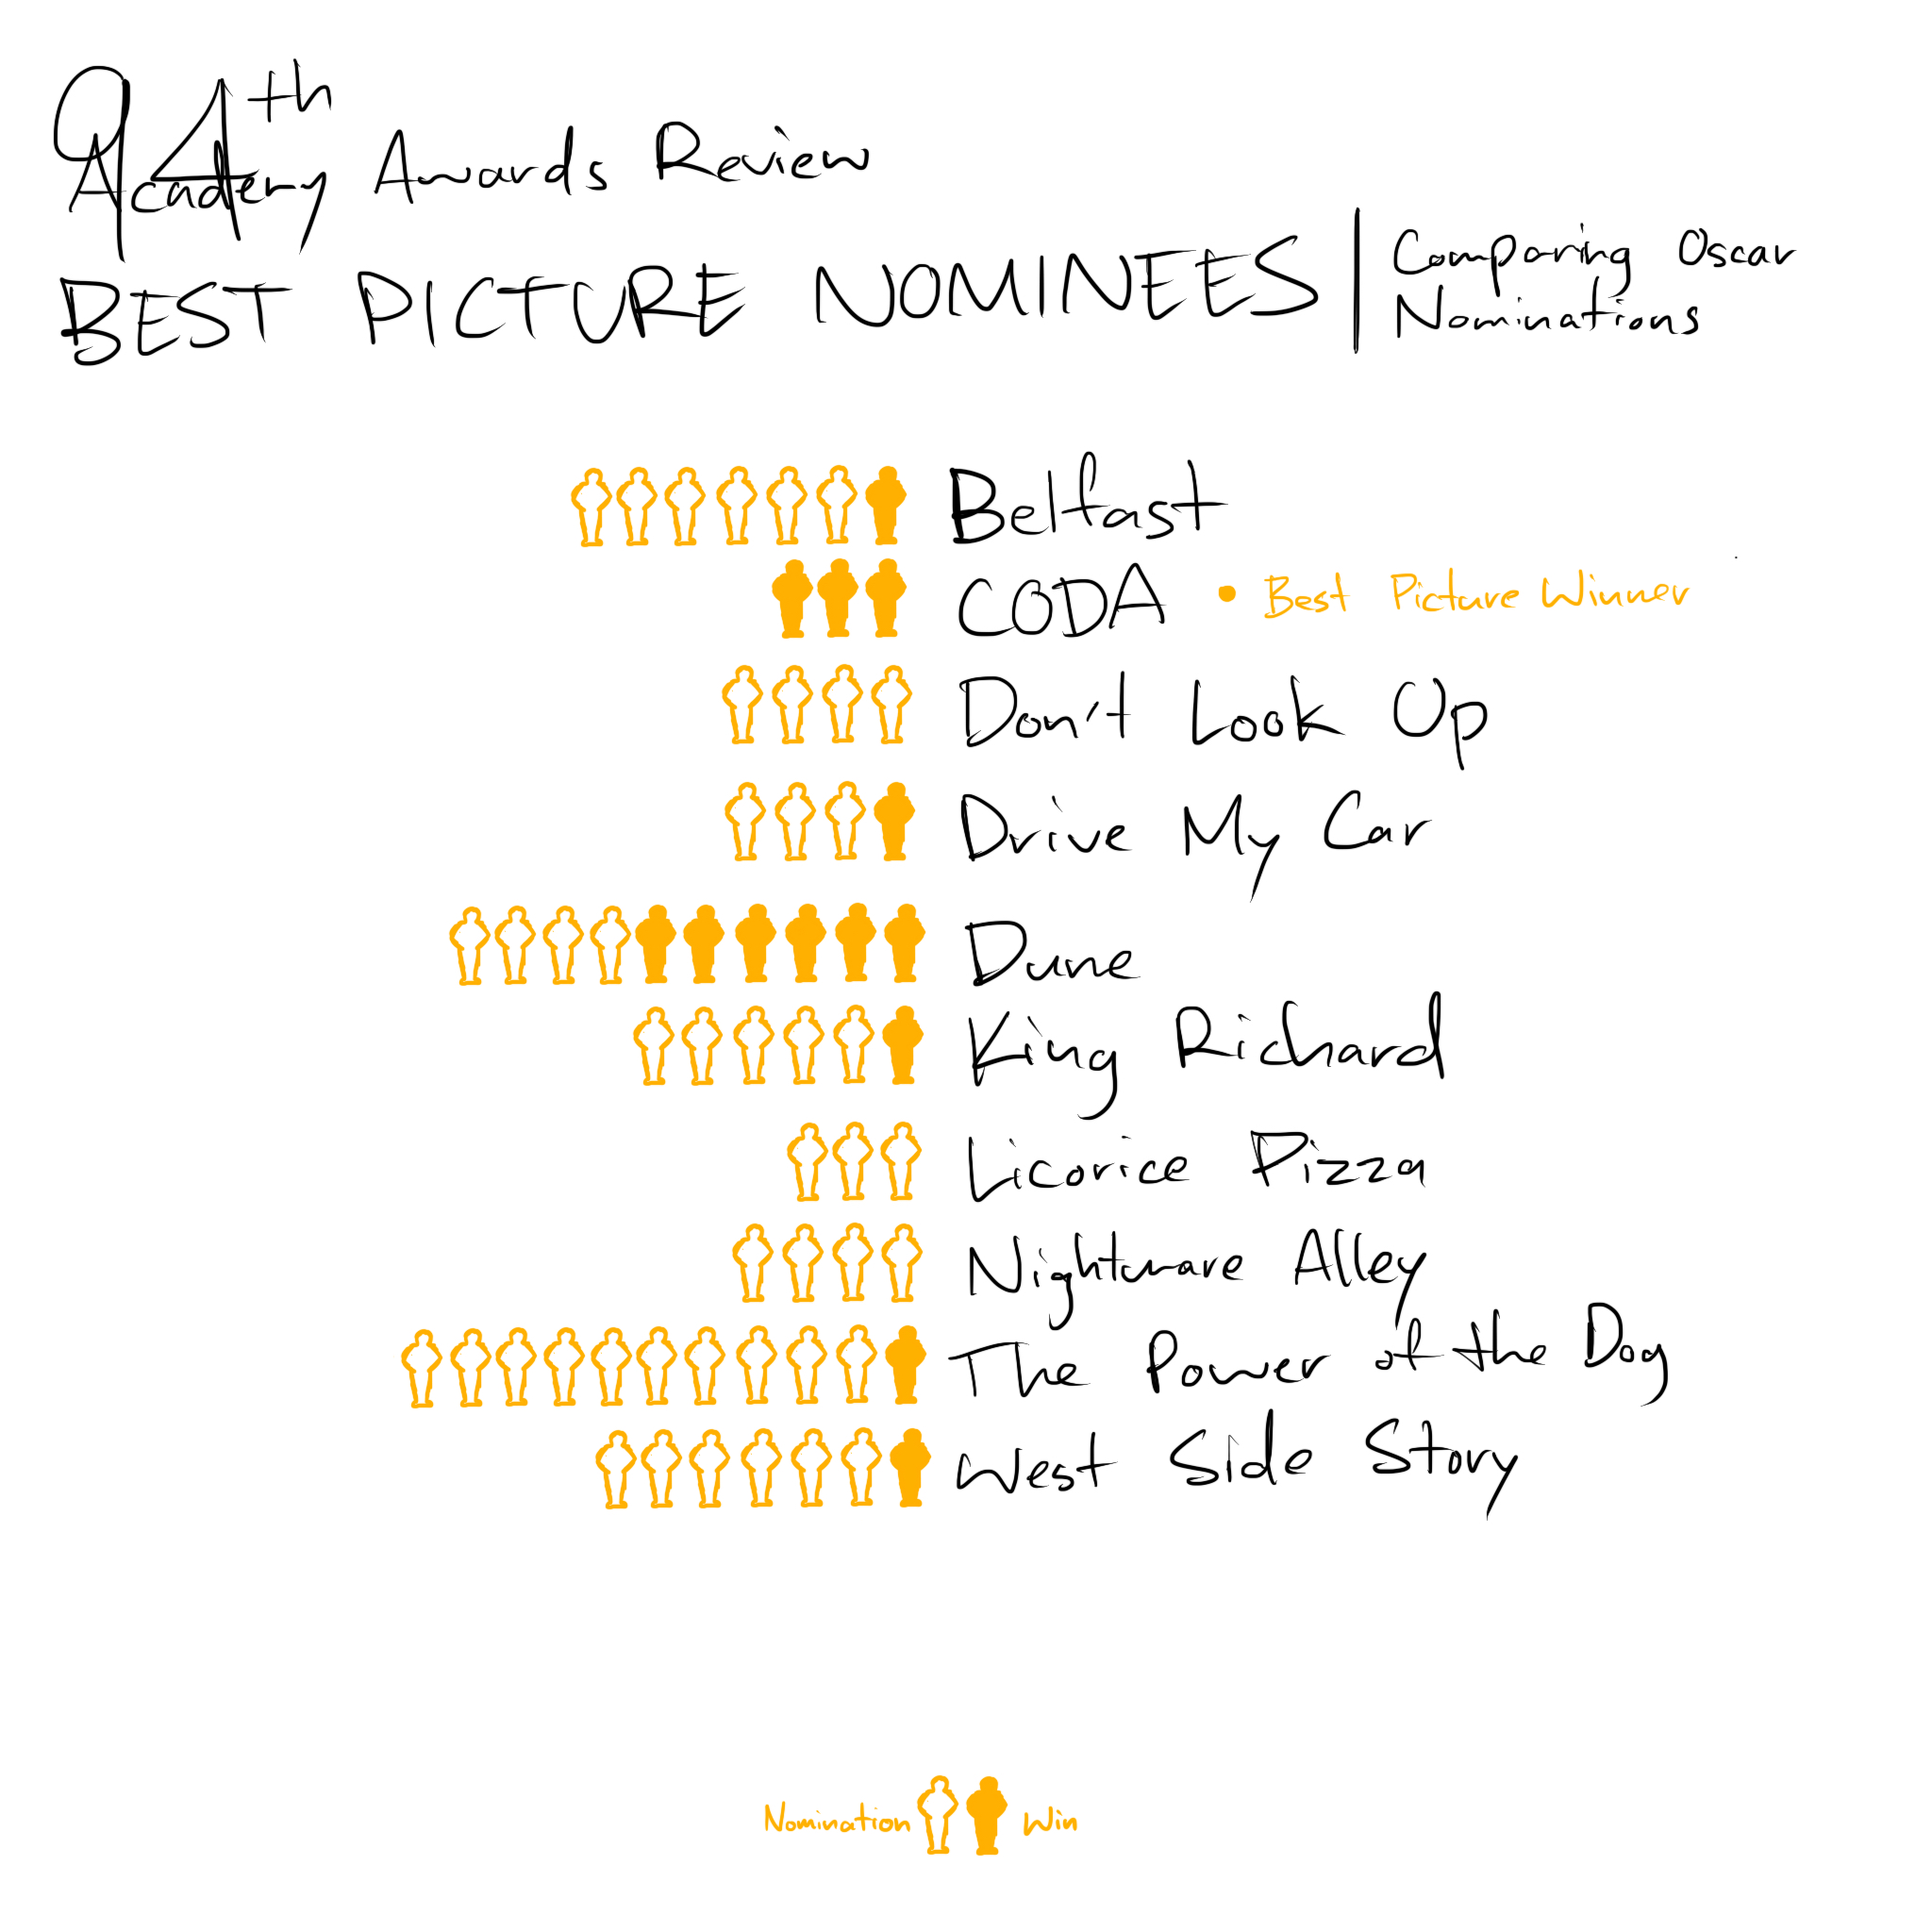 94th
Academy Awards Review
BEST PICTURE NOMINEES | Comparing Oscar
Nominations
Belfast
CODA • Best Picture Winner
Don't Look Up
Drive My Car
Dune
King Richard
Licorice Pizza
Nightmare Alley
The Power of the Dog
West Side Story
Nomination Win